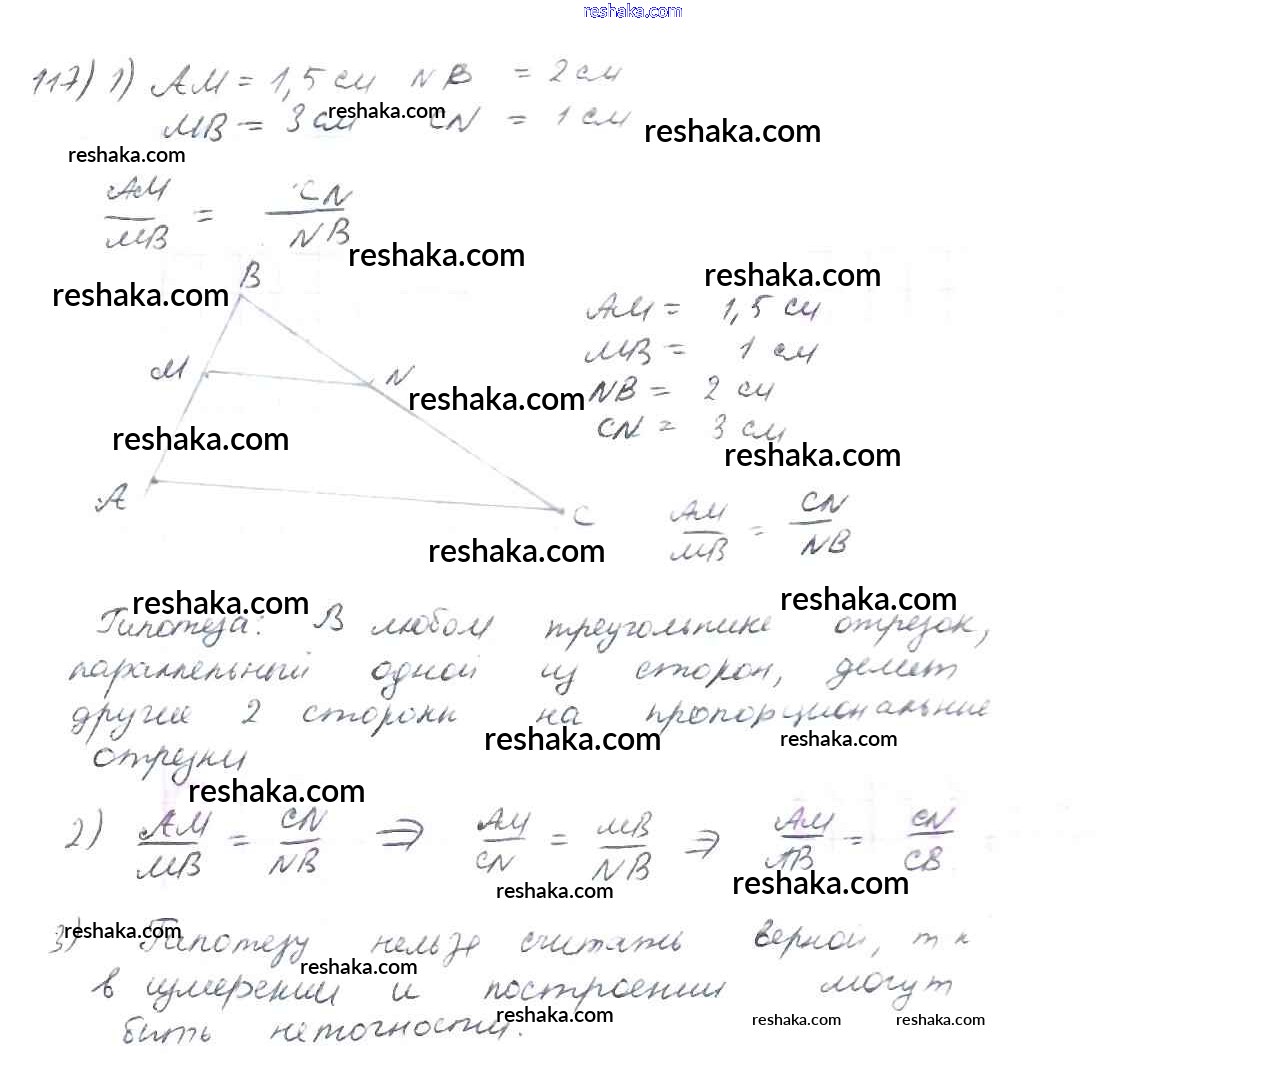 reshaka.com
117) 1) AM = 1,5 см NB = 2 см
reshaka.com
MB = 3 см CN = 1 см
reshaka.com
reshaka.com
AM/MB = CN/NB
reshaka.com
reshaka.com
reshaka.com
B
AM = 1,5 см
MB = 1 см
M
N
NB = 2 см
reshaka.com
CN = 3 см
reshaka.com
reshaka.com
A
C
AM/MB = CN/NB
reshaka.com
reshaka.com
reshaka.com
Гипотеза: В любом треугольнике отрезок,
параллельный одной из сторон, делит
другие 2 стороны на пропорциональные
reshaka.com
reshaka.com
отрезки
reshaka.com
2) AM/MB = CN/NB ⇒ AM/CN = MB/NB ⇒ AM/AB = CN/CB
reshaka.com
reshaka.com
reshaka.com
3) Гипотезу нельзя считать верной, т к
reshaka.com
в измерении и построении могут
reshaka.com
reshaka.com
reshaka.com
быть неточности.